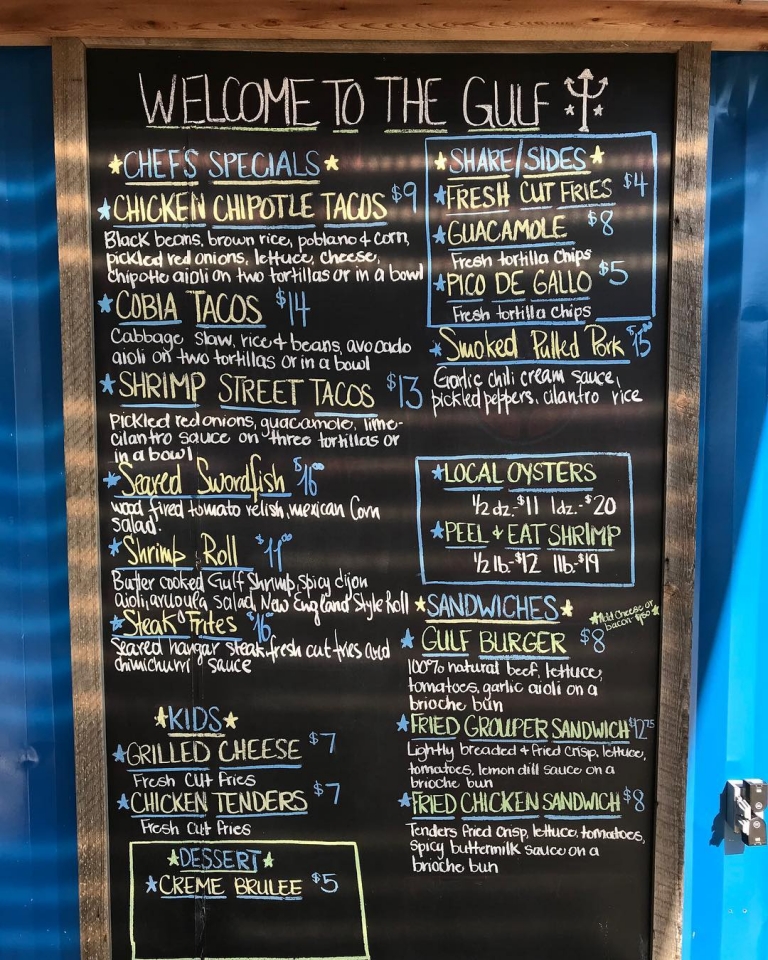 WELCOME TO THE GULF
CHEFS SPECIALS
CHICKEN CHIPOTLE TACOS $9
Black beans, brown rice, poblano & corn,
pickled red onions, lettuce, cheese,
chipotle aioli on two tortillas or in a bowl
COBIA TACOS $14
Cabbage slaw, rice & beans, avocado
aioli on two tortillas or in a bowl
SHRIMP STREET TACOS $13
pickled red onions, guacamole, lime-
cilantro sauce on three tortillas or
in a bowl
Seared Swordfish $16⁰⁰
wood fired tomato relish, mexican Corn
salad.
Shrimp Roll
Butter cooked Gulf Shrimp, spicy dijon
aioli, arugula salad, New England Style Roll
Steak Frites $16
Seared hangar steak, fresh cut fries and
chimichurri sauce
KIDS
GRILLED CHEESE $7
Fresh Cut Fries
CHICKEN TENDERS $7
Fresh Cut fries
DESSERT
CREME BRULEE $5
SHARE/SIDES
FRESH CUT FRIES $4
GUACAMOLE $8
Fresh tortilla chips
PICO DE GALLO $5
Fresh tortilla chips
Smoked Pulled Pork $15⁰⁰
Garlic chili cream sauce,
pickled peppers, cilantro rice
LOCAL OYSTERS
½ dz.-$11 1dz.-$20
PEEL & EAT SHRIMP
½ lb-$12 1lb-$19
SANDWICHES
Add cheese or
bacon
GULF BURGER $8
100% natural beef, lettuce,
tomatoes, garlic aioli on a
brioche bun
FRIED GROUPER SANDWICH $12.75
Lightly breaded & fried crisp, lettuce,
tomatoes, lemon dill sauce on a
brioche bun
FRIED CHICKEN SANDWICH $8
Tenders fried crisp, lettuce, tomatoes,
spicy buttermilk sauce on a
brioche bun